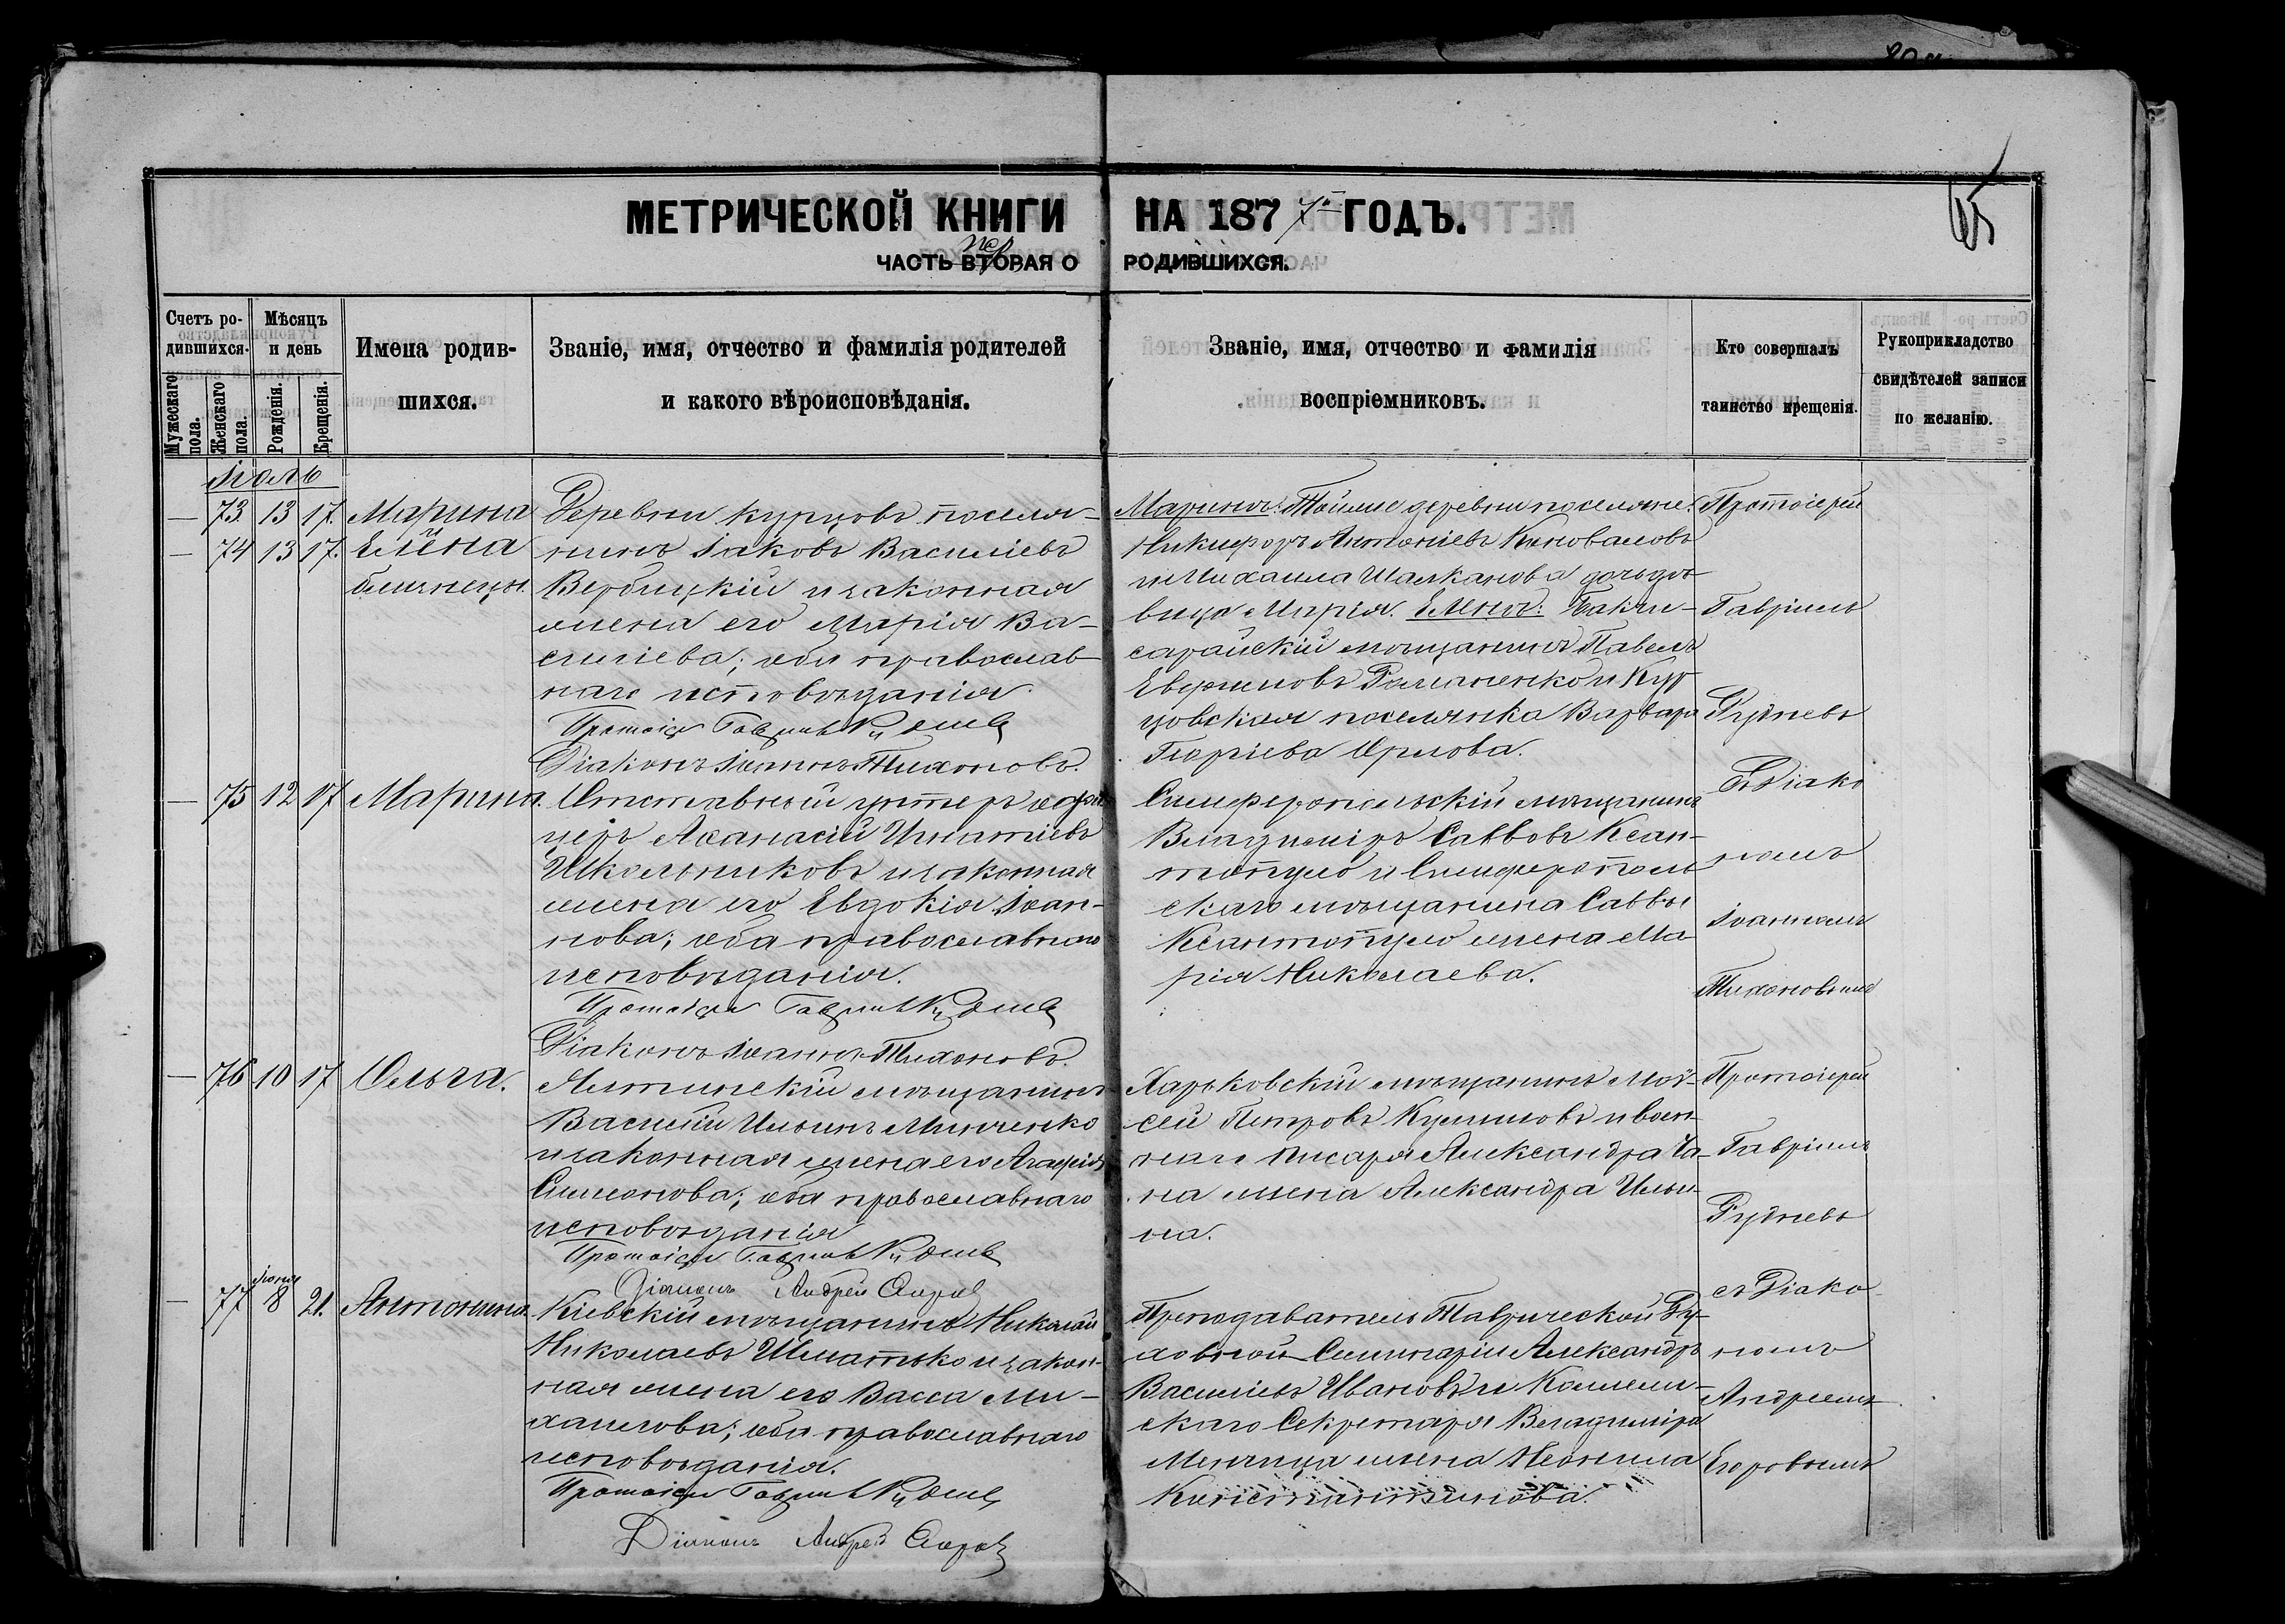 МЕТРИЧЕСКОЙ КНИГИ НА 1877й ГОДЪ.
65
пер
ЧАСТЬ ВТОРАЯ О РОДИВШИХСЯ.
Счетъ родившихся.
Мужескаго пола.
Женскаго пола.
Мѣсяцъ и день
Рожденія.
Крещенія.
Имена родив-
шихся.
Званіе, имя, отчество и фамилія родителей
и какого вѣроисповѣданія.
Званіе, имя, отчество и фамилія
воспріемниковъ.
Кто совершалъ
таинство крещенія.
Рукоприкладство
свидѣтелей записи
по желанію.
Іюль
— 73 13 17. Марина
— 74 13 17. Елена
близнецы.
Деревни Курцовъ поселя-
нинъ Іаковъ Василіевъ
Вербицкій и законная
жена его Марія Ва-
силіева; оба православ-
наго исповѣданія.
Протоіерей Гавріилъ Рудневъ
Діаконъ Іоаннъ Тихоновъ.
Марины: Тойже деревни поселяне:
Никифоръ Антоніевъ Коноваловъ
и Михаила Шалканова дочь дѣ-
вица Марія. Елены: Бахчи-
сарайскій мѣщанинъ Павелъ
Евфимовъ Романенко и Кур-
цовская поселянка Варвара
Георгіева Орлова.
Протоіерей
Гавріилъ
Рудневъ
съ Діако
номъ
Іоанномъ
Тихоновымъ
— 75 12 17 Марина.
Отставной унтеръ офи-
церъ Аѳанасій Игнатіевъ
Школьниковъ и законная
жена его Евдокія Іоан-
нова; оба православнаго
исповѣданія.
Протоіерей Гавріилъ Рудневъ
Діаконъ Іоаннъ Тихоновъ.
Симферопольскій мѣщанинъ
Владиміръ Саввовъ Ксан-
топуло и Симферополь
скаго мѣщанина Саввы
Ксантопуло жена Ма
рія Николаева.
— 76 10 17 Ольга.
Ялтинскій мѣщанинъ
Василій Ильинъ Минченко
и законная жена его Агафія
Симеонова; оба православнаго
исповѣданія
Протоіерей Гавріилъ Рудневъ
Діаконъ Андрей
Харьковскій мѣщанинъ Мой-
сей Петровъ и воен-
наго писаря Александра
на жена Александра Ильи-
на.
Протоіерей
Гавріилъ
Рудневъ
съ Діако
номъ
Андреемъ
Егоровымъ
— 77 Іюня 8 21. Антонина.
Кіевскій мѣщанинъ Николай
Николаевъ Шматько и закон-
ная жена его Васса Ми-
хаилова; оба православнаго
исповѣданія.
Протоіерей Гавріилъ Рудневъ
Діаконъ Андрей
Преподаватель Таврической Ду-
ховной Семинаріи Александръ
Василіевъ Ивановъ и Коллеж-
скаго Секретаря Владиміра
жена Неонила
Константинова.